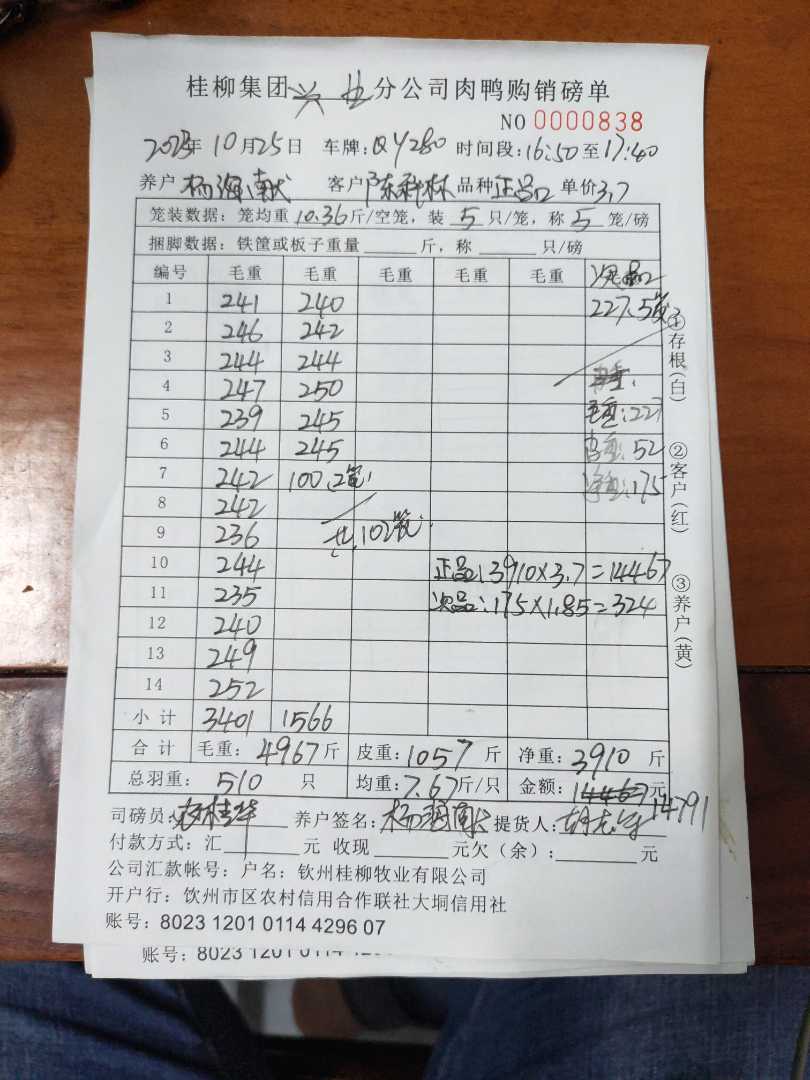 桂柳集团兴业分公司肉鸭购销磅单
NO 0000838
2023年10月25日 车牌:QY280 时间段:16:50至17:40
养户 杨海献 客户 陈 林 品种 正品 单价3.7
笼装数据:笼均重10.36斤/空笼,装5只/笼,称5笼/磅
捆脚数据:铁筐或板子重量 斤,称 只/磅
编号 毛重 毛重 毛重 毛重 毛重 次品
1 241 240 227.5
2 246 242
3 244 244
4 247 250
5 239 245 毛重:227
6 244 245 皮重:52
7 242 100(2笼) 净重:175
8 242
9 236 共102笼
10 244 正品:3910×3.7=14467
11 235 次品:175×1.85=324
12 240
13 249
14 252
小计 3401 1566
合计 毛重:4967斤 皮重:1057斤 净重:3910斤
总羽重:510只 均重:7.67斤/只 金额:14467元
14791
司磅员: 养户签名:杨海献 提货人:
付款方式:汇 元 收现 元欠(余): 元
公司汇款帐号:户名:钦州桂柳牧业有限公司
开户行:钦州市区农村信用合作联社大垌信用社
账号:8023 1201 0114 4296 07
①存根(白)
②客户(红)
③养户(黄)
账号:8023 1201 0114